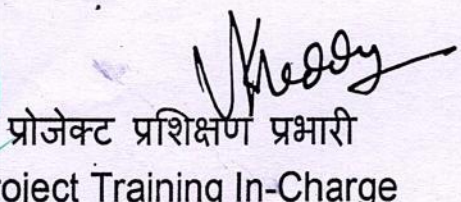 प्रोजेक्ट प्रशिक्षण प्रभारी
roject Training In-Charge